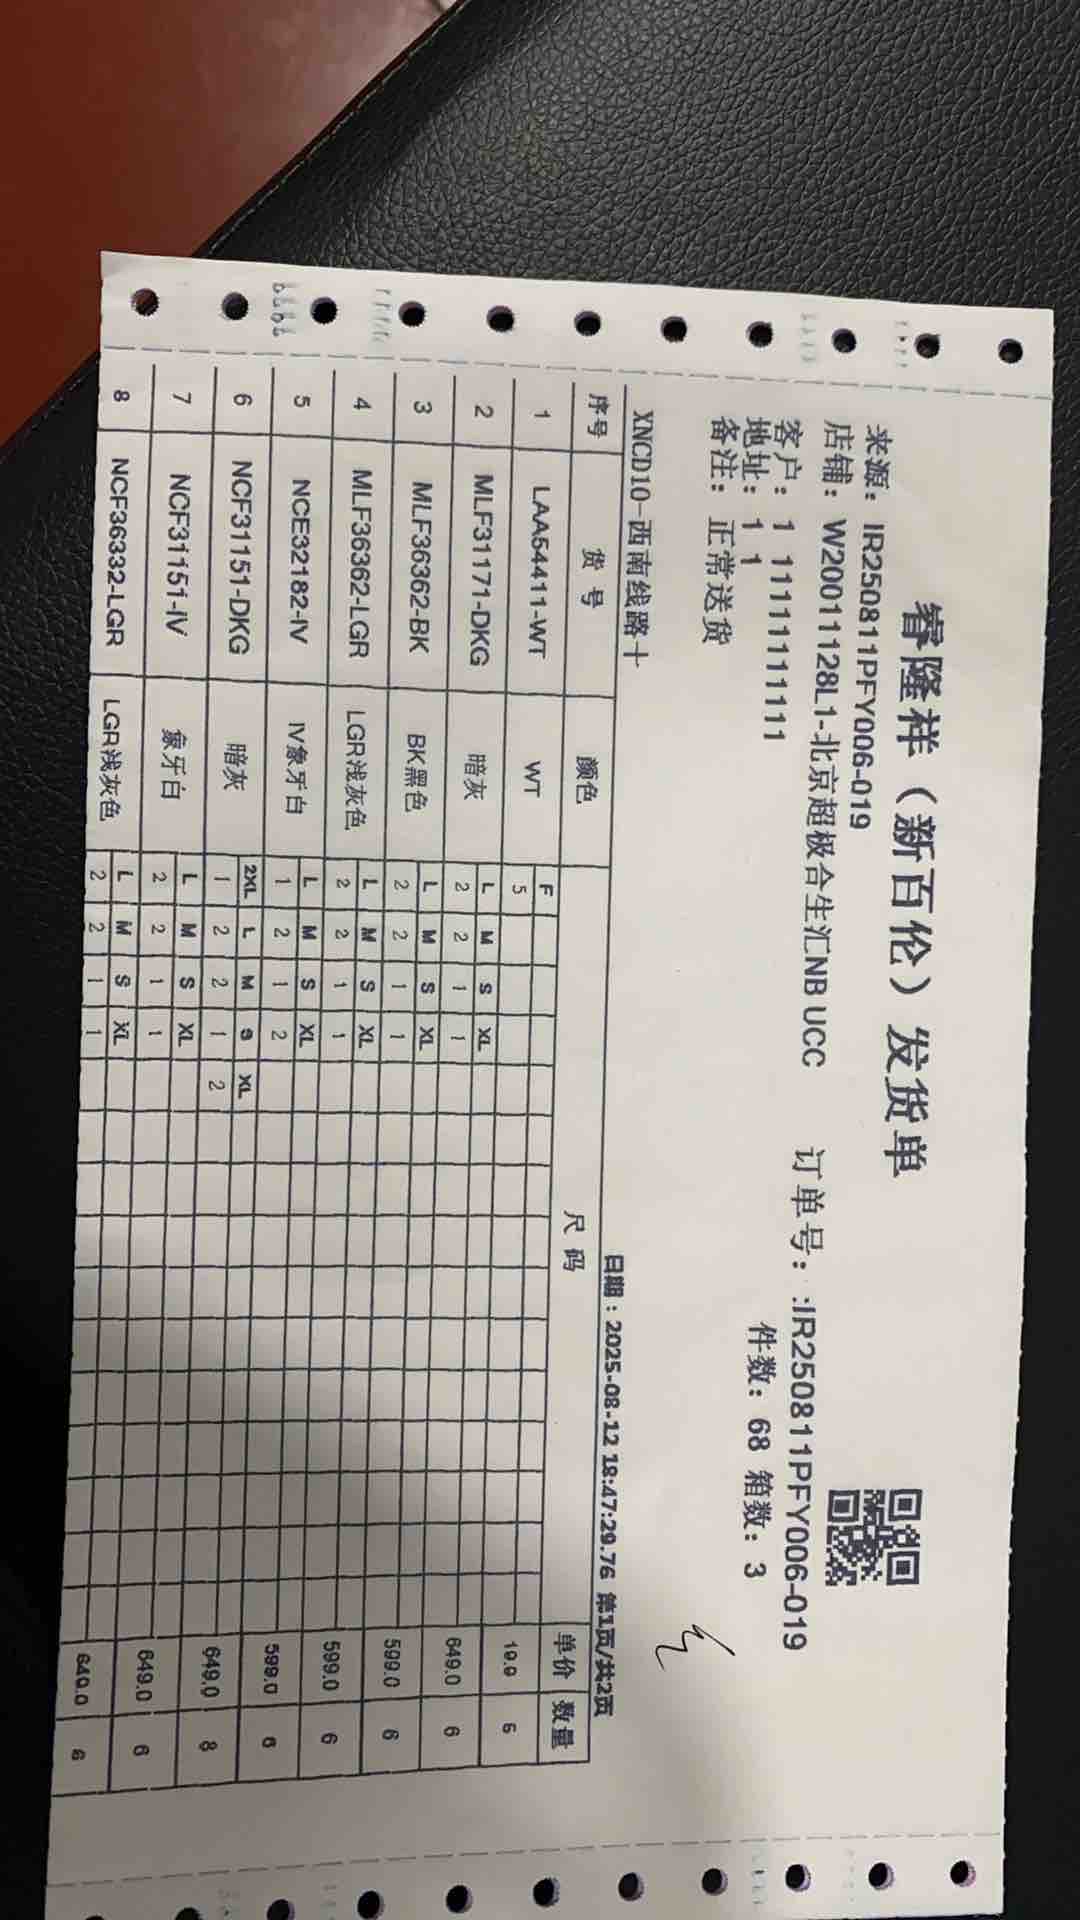 睿隆祥（新百伦）发货单
来源：IR250811PFY006-019
店铺：W20011128L1-北京超极合生汇NB UCC 订单号：:IR250811PFY006-019
客户：1 11111111111 件数：68 箱数：3
地址：1 1
备注：正常送货
XNCD10-西南线路十 日期：2025-08-12 18:47:29.76 第1页/共2页
序号 货号 颜色 尺码 单价 数量
1 LAA54411-WT WT F 19.9 5
5
2 MLF31171-DKG 暗灰 L M S XL 649.0 6
2 2 1 1
3 MLF36362-BK BK黑色 L M S XL 599.0 6
2 2 1 1
4 MLF36362-LGR LGR浅灰色 L M S XL 599.0 6
2 2 1 1
5 NCE32182-IV IV象牙白 L M S XL 599.0 6
1 2 1 2
6 NCF31151-DKG 暗灰 2XL L M S XL 649.0 8
1 2 2 1 2
7 NCF31151-IV 象牙白 L M S XL 649.0 6
2 2 1 1
8 NCF36332-LGR LGR浅灰色 L M S XL 649.0 6
2 2 1 1